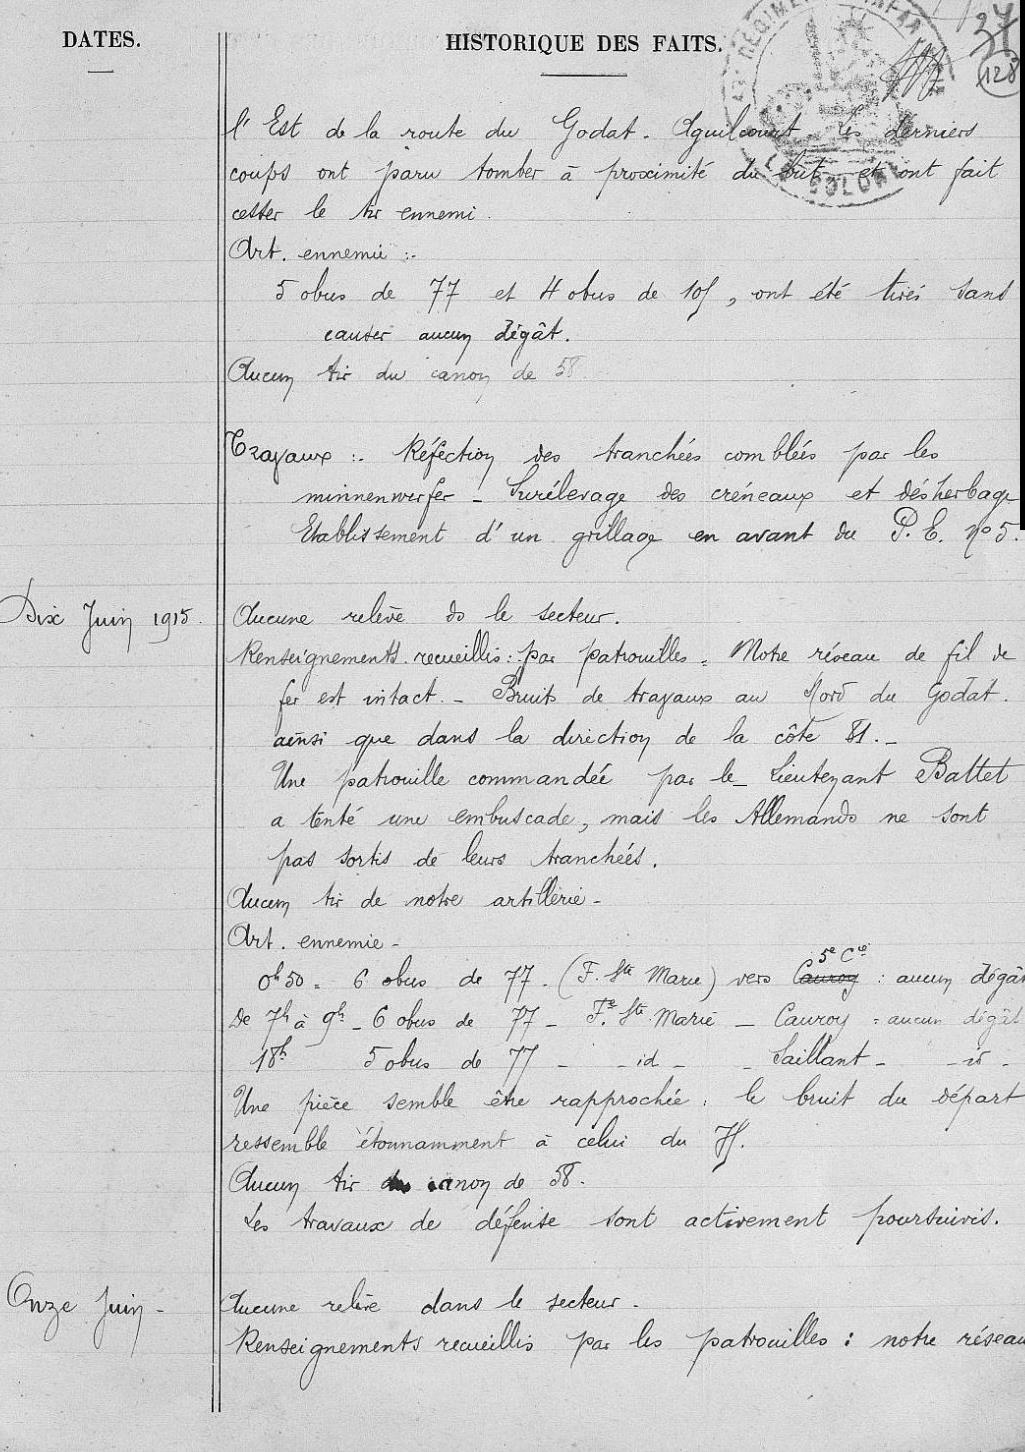 DATES.
HISTORIQUE DES FAITS.
37
128
l'Est de la route du Godat. Aguilcourt. Les derniers
coups ont paru tomber à proximité du but et ont fait
cesser le tir ennemi.
Art. ennemie :.
5 obus de 77 et 4 obus de 105, ont été tirés sans
causer aucun dégât.
Aucun tir du canon de 58
Travaux :. Réfection des tranchées comblées par les
minnenwerfer _ Surélevage des créneaux et désherbage
Etablissement d'un grillage en avant du P. E. n° 5.
Dix Juin 1915. Aucune relève ds le secteur.
Renseignements recueillis : par patrouilles = Notre réseau de fil de
fer est intact. _ Bruits de travaux au Nord du Godat.
ainsi que dans la direction de la côte 81. _
Une patrouille commandée par le Lieutenant Battet
a tenté une embuscade, mais les Allemands ne sont
pas sortis de leurs tranchées.
Aucun tir de notre artillerie _
Art. ennemie _
5e Cie
0h50 = 6 obus de 77. (F. Ste Marie) vers Cauroy : aucun dégât
De 7h à 9h _ 6 obus de 77 _ Fe. Ste Marie _ Cauroy = aucun dégât
18h 5 obus de 77 _ id _ _ Saillant _ id _
Une pièce semble être rapprochée : le bruit du départ
ressemble étonnamment à celui du 75.
Aucun tir du canon de 58.
Les travaux de défense sont activement poursuivis.
Onze Juin _ Aucune relève dans le secteur.
Renseignements recueillis par les patrouilles : notre réseau